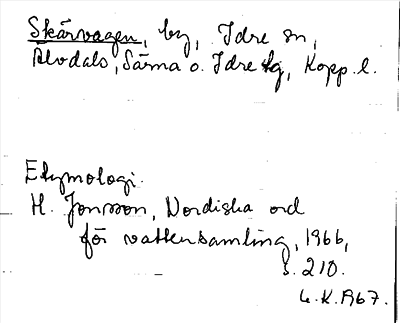 Skärvagen, by, Idre sn,
Älvdals, Särna o. Idre tg, Kopp. l.
Etymologi.
H. Jonsson, Nordiska ord
för vattensamling, 1966,
s. 210.
L.K. 1967.